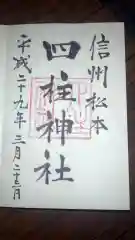 信州松本
四柱神社
平成二十九年三月二十三日